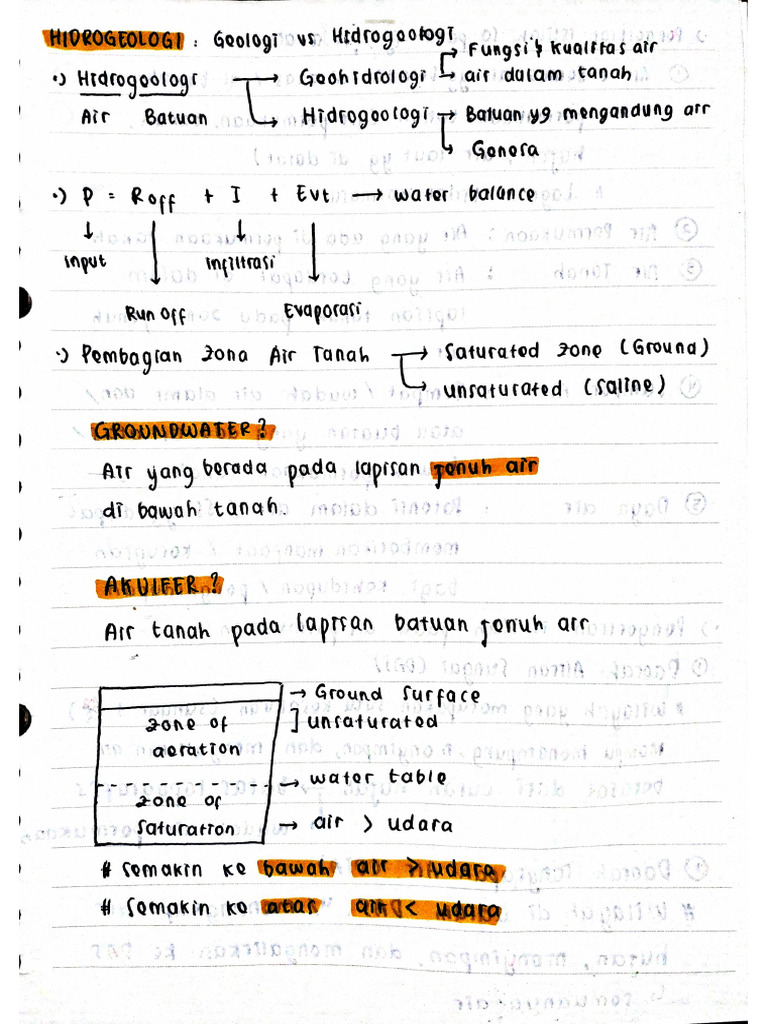 HIDROGEOLOGI : Geologi vs Hidrogeologi
•) Hidrogeologi → Geohidrologi → Fungsi & kualitas air
→ air dalam tanah
Air Batuan → Hidrogeologi → Batuan yg mengandung air
→ Genesa
•) P = Roff + I + Evt → water balance
input infiltrasi
Run Off Evaporasi
•) Pembagian Zona Air Tanah → Saturated Zone (Ground)
→ unsaturated (Saline)
GROUNDWATER?
Air yang berada pada lapisan jenuh air
di bawah tanah.
AKUIFER?
Air tanah pada lapisan batuan jenuh air
→ Ground Surface
zone of aeration ] unsaturated
→ water table
zone of saturation → air > udara
# semakin ke bawah air > udara
# semakin ke atas air < udara